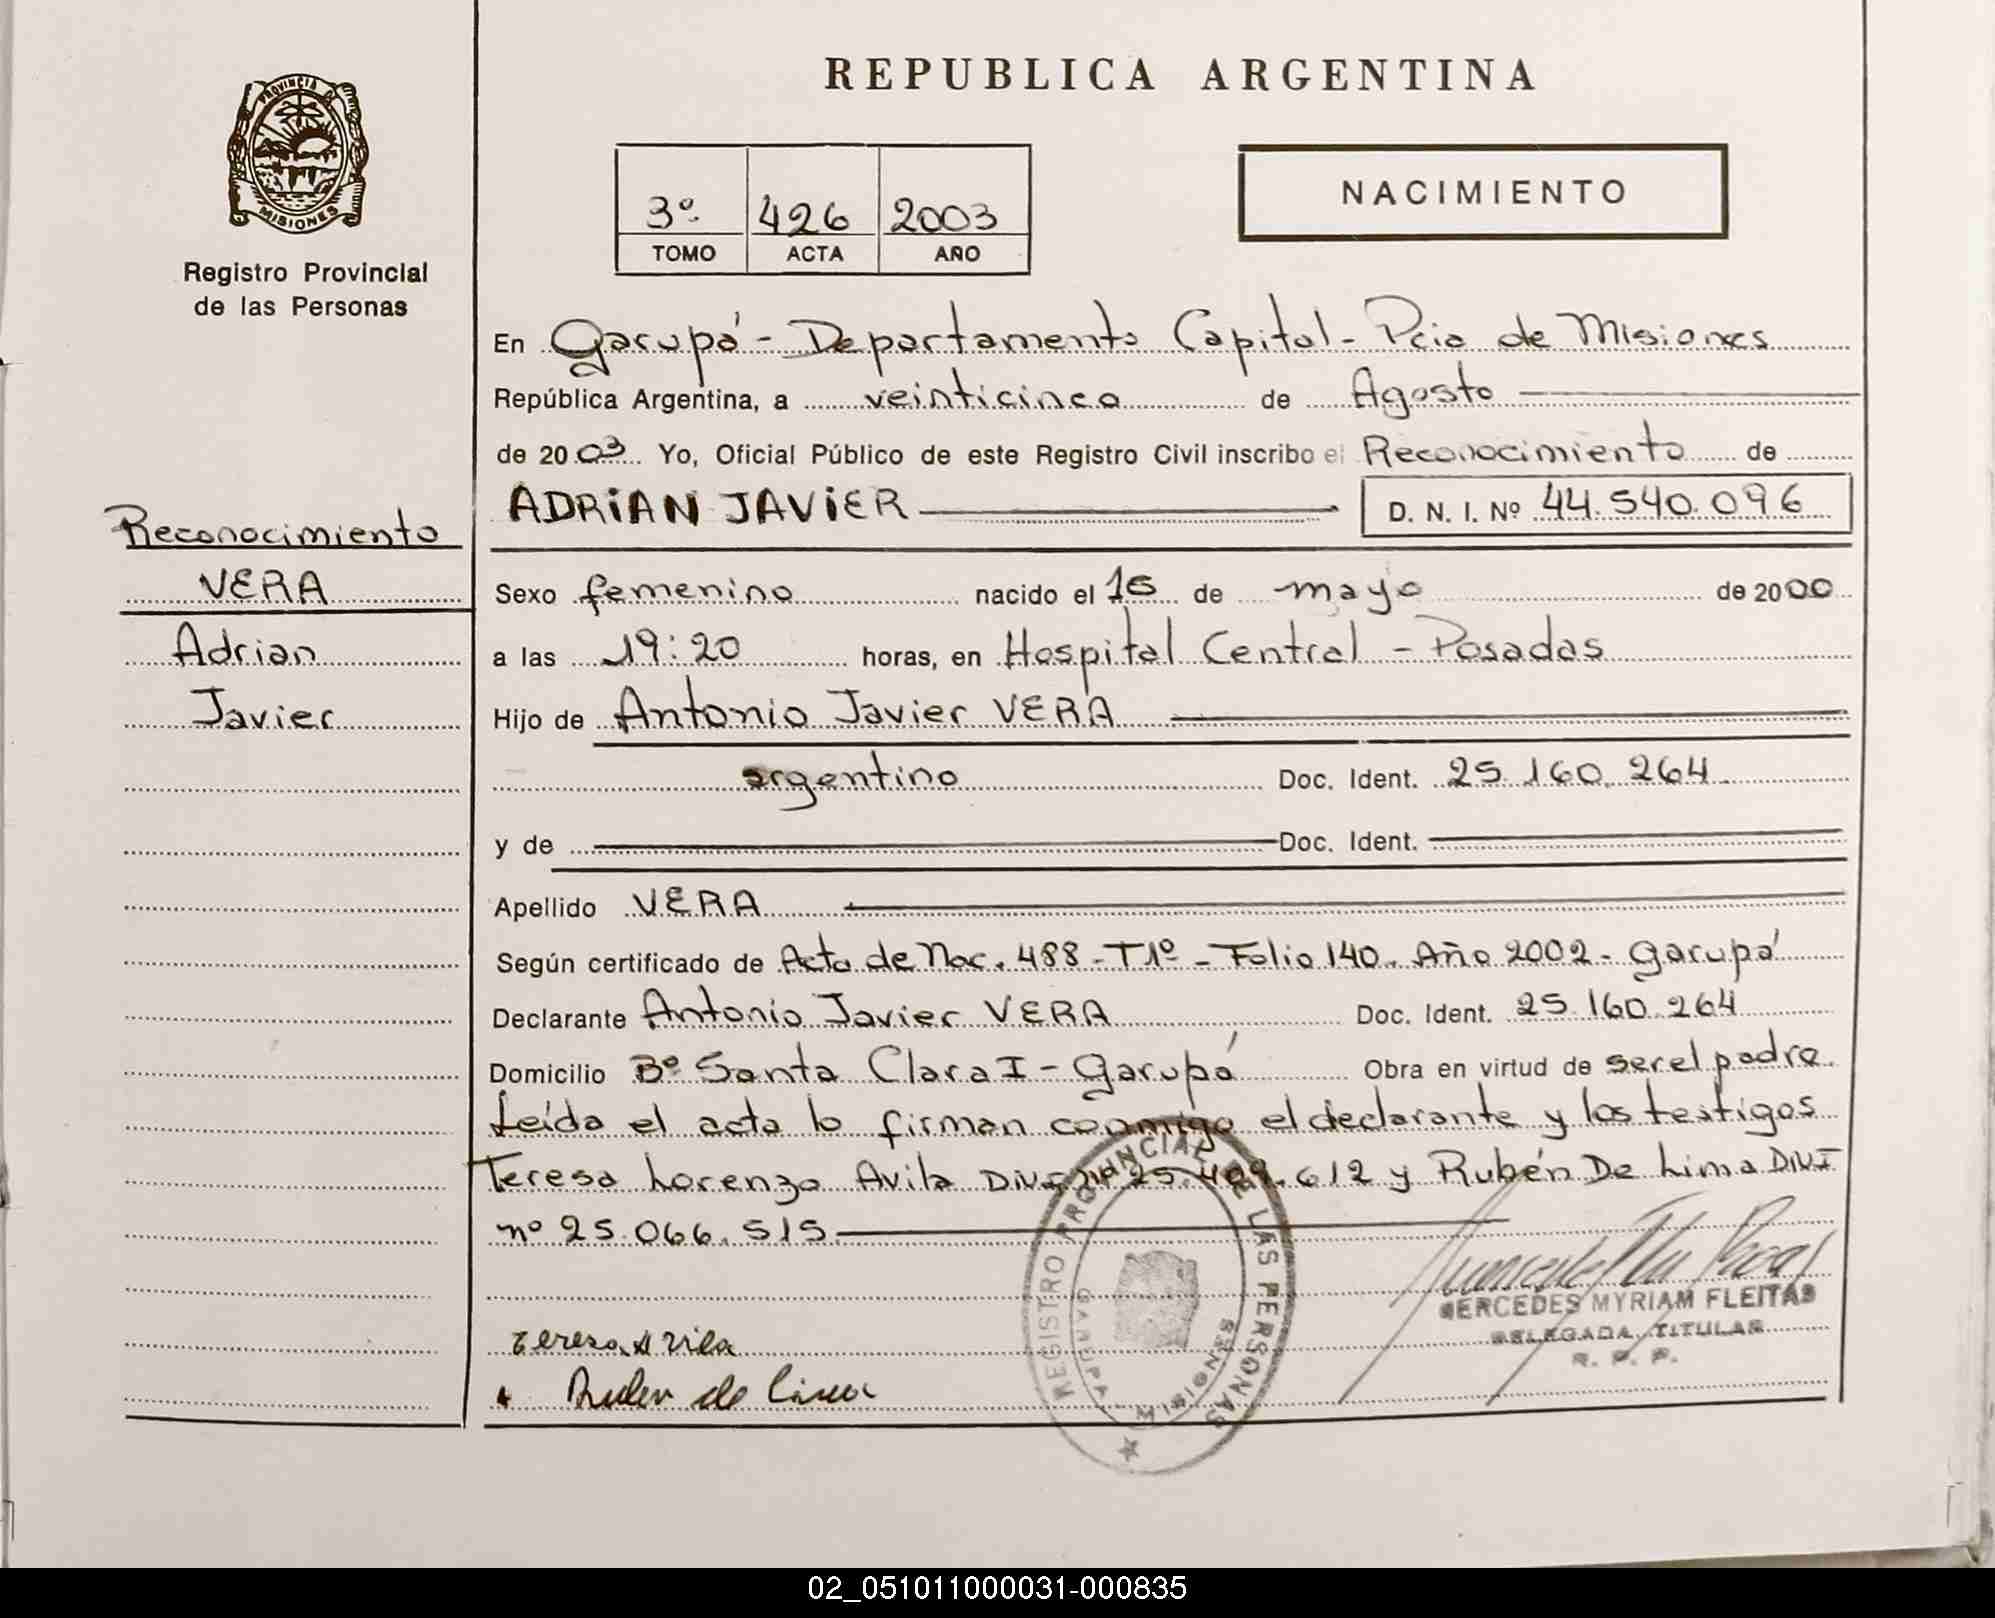 REPUBLICA ARGENTINA
PROVINCIA DE
MISIONES
Registro Provincial
de las Personas
3º 426 2003
TOMO ACTA AÑO
NACIMIENTO
En Garupá - Departamento Capital - Pcia de Misiones
República Argentina, a veinticinco de Agosto
de 2003 Yo, Oficial Público de este Registro Civil inscribo el Reconocimiento de
ADRIAN JAVIER D. N. I. Nº 44.540.096
Reconocimiento
VERA
Adrian
Javier
Sexo femenino nacido el 15 de mayo de 2000
a las 19:20 horas, en Hospital Central - Posadas
Hijo de Antonio Javier VERA
argentino Doc. Ident. 25.160.264
y de Doc. Ident.
Apellido VERA
Según certificado de Acta de Nac. 488 - T1º - Folio 140. Año 2002 - Garupá
Declarante Antonio Javier VERA Doc. Ident. 25.160.264
Domicilio Bº Santa Clara I - Garupá Obra en virtud de ser el padre.
Leída el acta lo firman conmigo el declarante y los testigos
Teresa Lorenza Avila DNI nº 25.409.612 y Rubén De Lima DNI
nº 25.066.515
REGISTRO PROVINCIAL DE LAS PERSONAS
MISIONES
MERCEDES MYRIAM FLEITAS
DELEGADA TITULAR
R. P. P.
Teresa Avila
Ruben de Lima
02_051011000031-000835